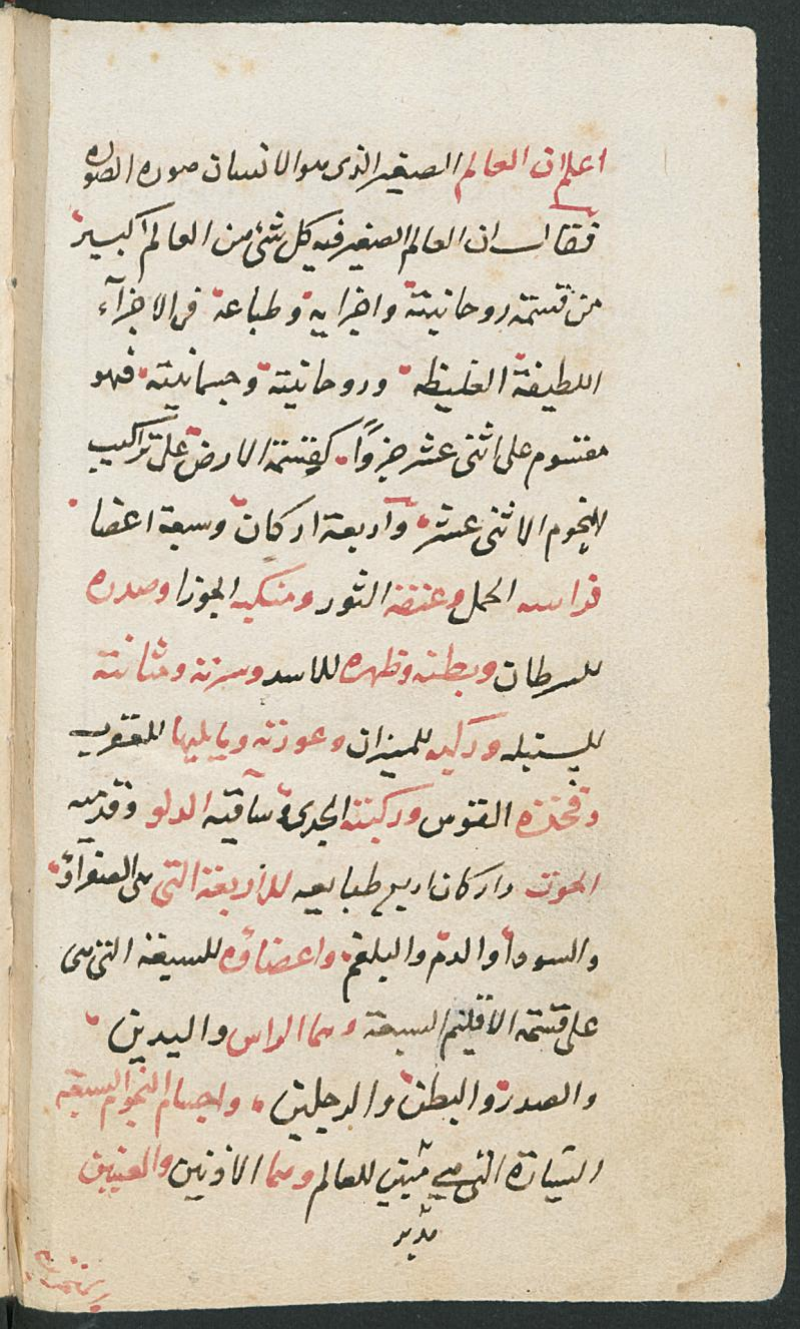 اعلم ان العالم الصغير الذى هو الانسان صوره الصوره
فقال ان العالم الصغير فيه كل شئ من العالم اكبير
من قسمة روحانيتة واجزايه وطباعة فى الاجزآء
اللطيفة الغليظه وروحانيتة وجسمانيته فهو
مقسوم على اثنى عشر جزوًا كقسمة الارض على تراكيب
النجوم الاثنى عشر وآربعة اركان وسبعة اعضا
فراسه الحمل وعنقه الثور ومنكبه الجوزا وصدره
للسرطان وبطنه وظهره للاسد وسرته ومثانته
للسنبله ووركيه للميزان وعورته وما يليها للعقرب
وفخذه القوس وركبته الجدى وساقيه الدلو وقدميه
الحوت واركان اربع طبايعه للاربعة التى هى الصفرآؤ
والسودآ والدم والبلغم واعضاؤه للسبعة التى هى
على قسمة الاقليم السبعة وهما الراس واليدين
والصدر والبطن والرجلين واجسام النجوم السبعه
السيارة التى هى للعالم وهما الاذنين والعينين